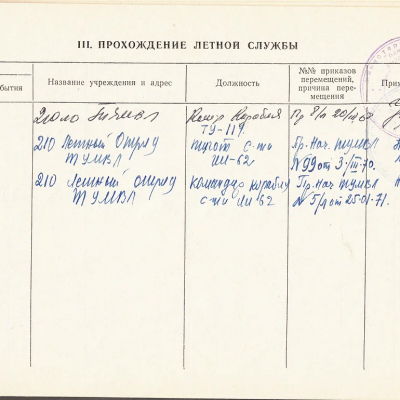 III. ПРОХОЖДЕНИЕ ЛЕТНОЙ СЛУЖБЫ
бытия
Название учреждения и адрес
Должность
№№ приказов
перемещений,
причина пере-
мещения
При
210 ло
Корабля
ТУ-114
Пр
210 Летный Отряд
ТУМВЛ
пилот с-та
ИЛ-62
Пр. Нач. ТУМВЛ
№99 от 3/III-70.
210 Летный отряд
ТУМВЛ
командир корабля
с-та Ил 62
Пр. Нач. ТУМВЛ
№5/л от 25-01-71.